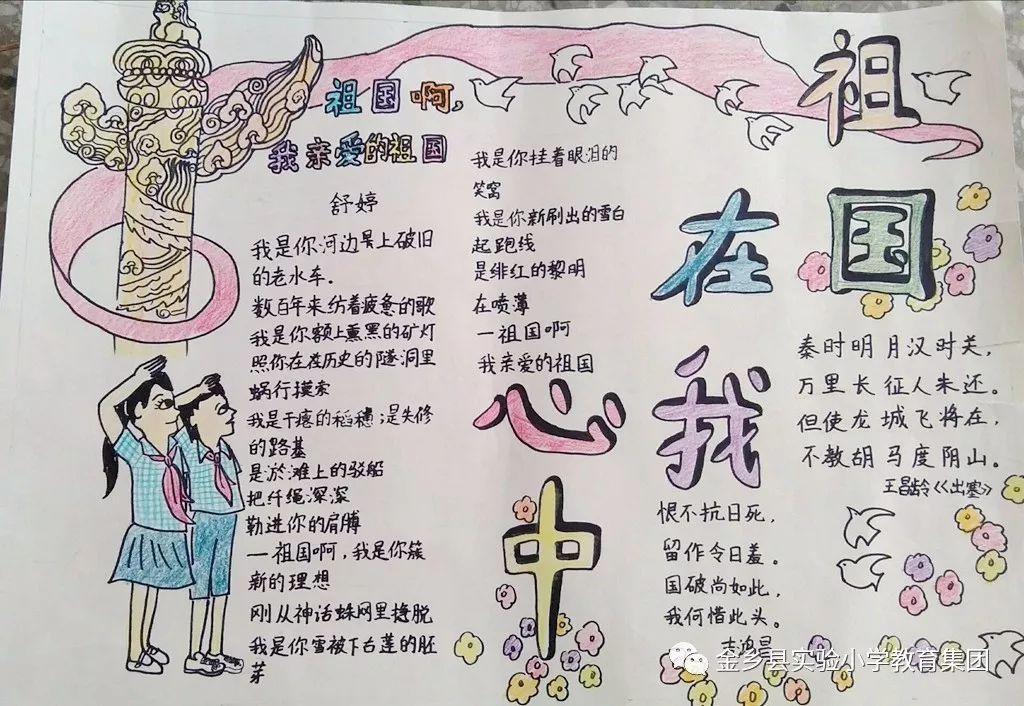 祖国啊,
我亲爱的祖国
舒婷
我是你河边上破旧
的老水车.
数百年来纺着疲惫的歌
我是你额上熏黑的矿灯
照你在在历史的隧洞里
蜗行摸索
我是干瘪的稻穗;是失修
的路基
是淤滩上的驳船
把纤绳深深
勒进你的肩膊
一祖国啊,我是你簇
新的理想
刚从神话蛛网里挣脱
我是你雪被下古莲的胚
芽
我是你挂着眼泪的
笑窝
我是你新刷出的雪白
起跑线
是绯红的黎明
在喷薄
一祖国啊
我亲爱的祖国
祖
国
在
我
心
中
秦时明月汉时关,
万里长征人未还。
但使龙城飞将在,
不教胡马度阴山。
王昌龄《出塞》
恨不抗日死,
留作今日羞。
国破尚如此,
我何惜此头。
吉鸿昌
金乡县实验小学教育集团